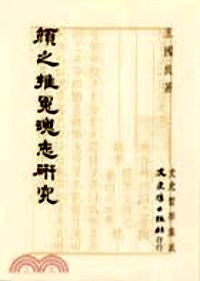 王國良著
顏之推冤魂志研究
文史哲學集成
文史哲出版社印行